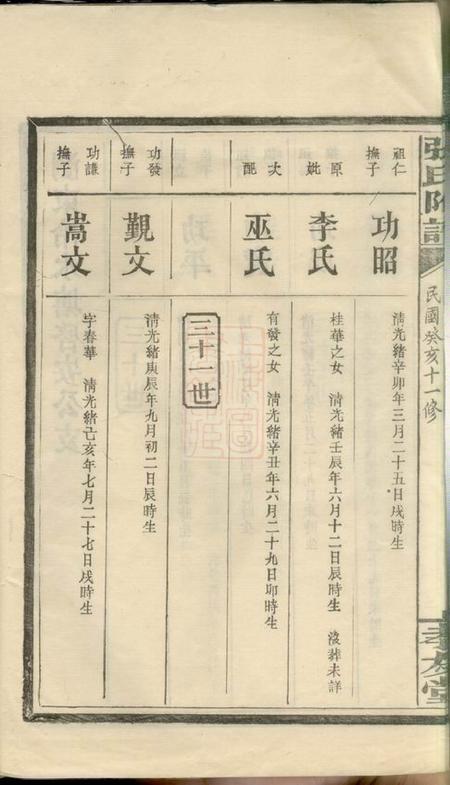 民國癸亥十一修
祖仁
撫子
功昭
清光緒辛卯年三月二十五日戌時生
原
妣
李氏
桂華之女 清光緒壬辰年六月十二日辰時生 沒葬未詳
次
配
巫氏
有發之女 清光緒辛丑年六月二十九日卯時生
三十一世
功發
撫子
覲文
清光緒庚辰年九月初二日辰時生
功謙
撫子
嵩文
字春華 清光緒乙亥年七月二十七日戌時生